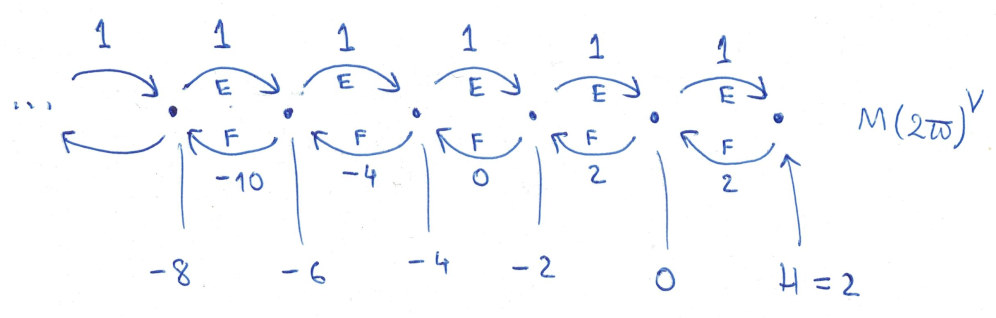 1 1 1 1 1 1
E E E E E
... M(2ϖ)^∨
F F F F F
-10 -4 0 2 2
-8 -6 -4 -2 0 H = 2